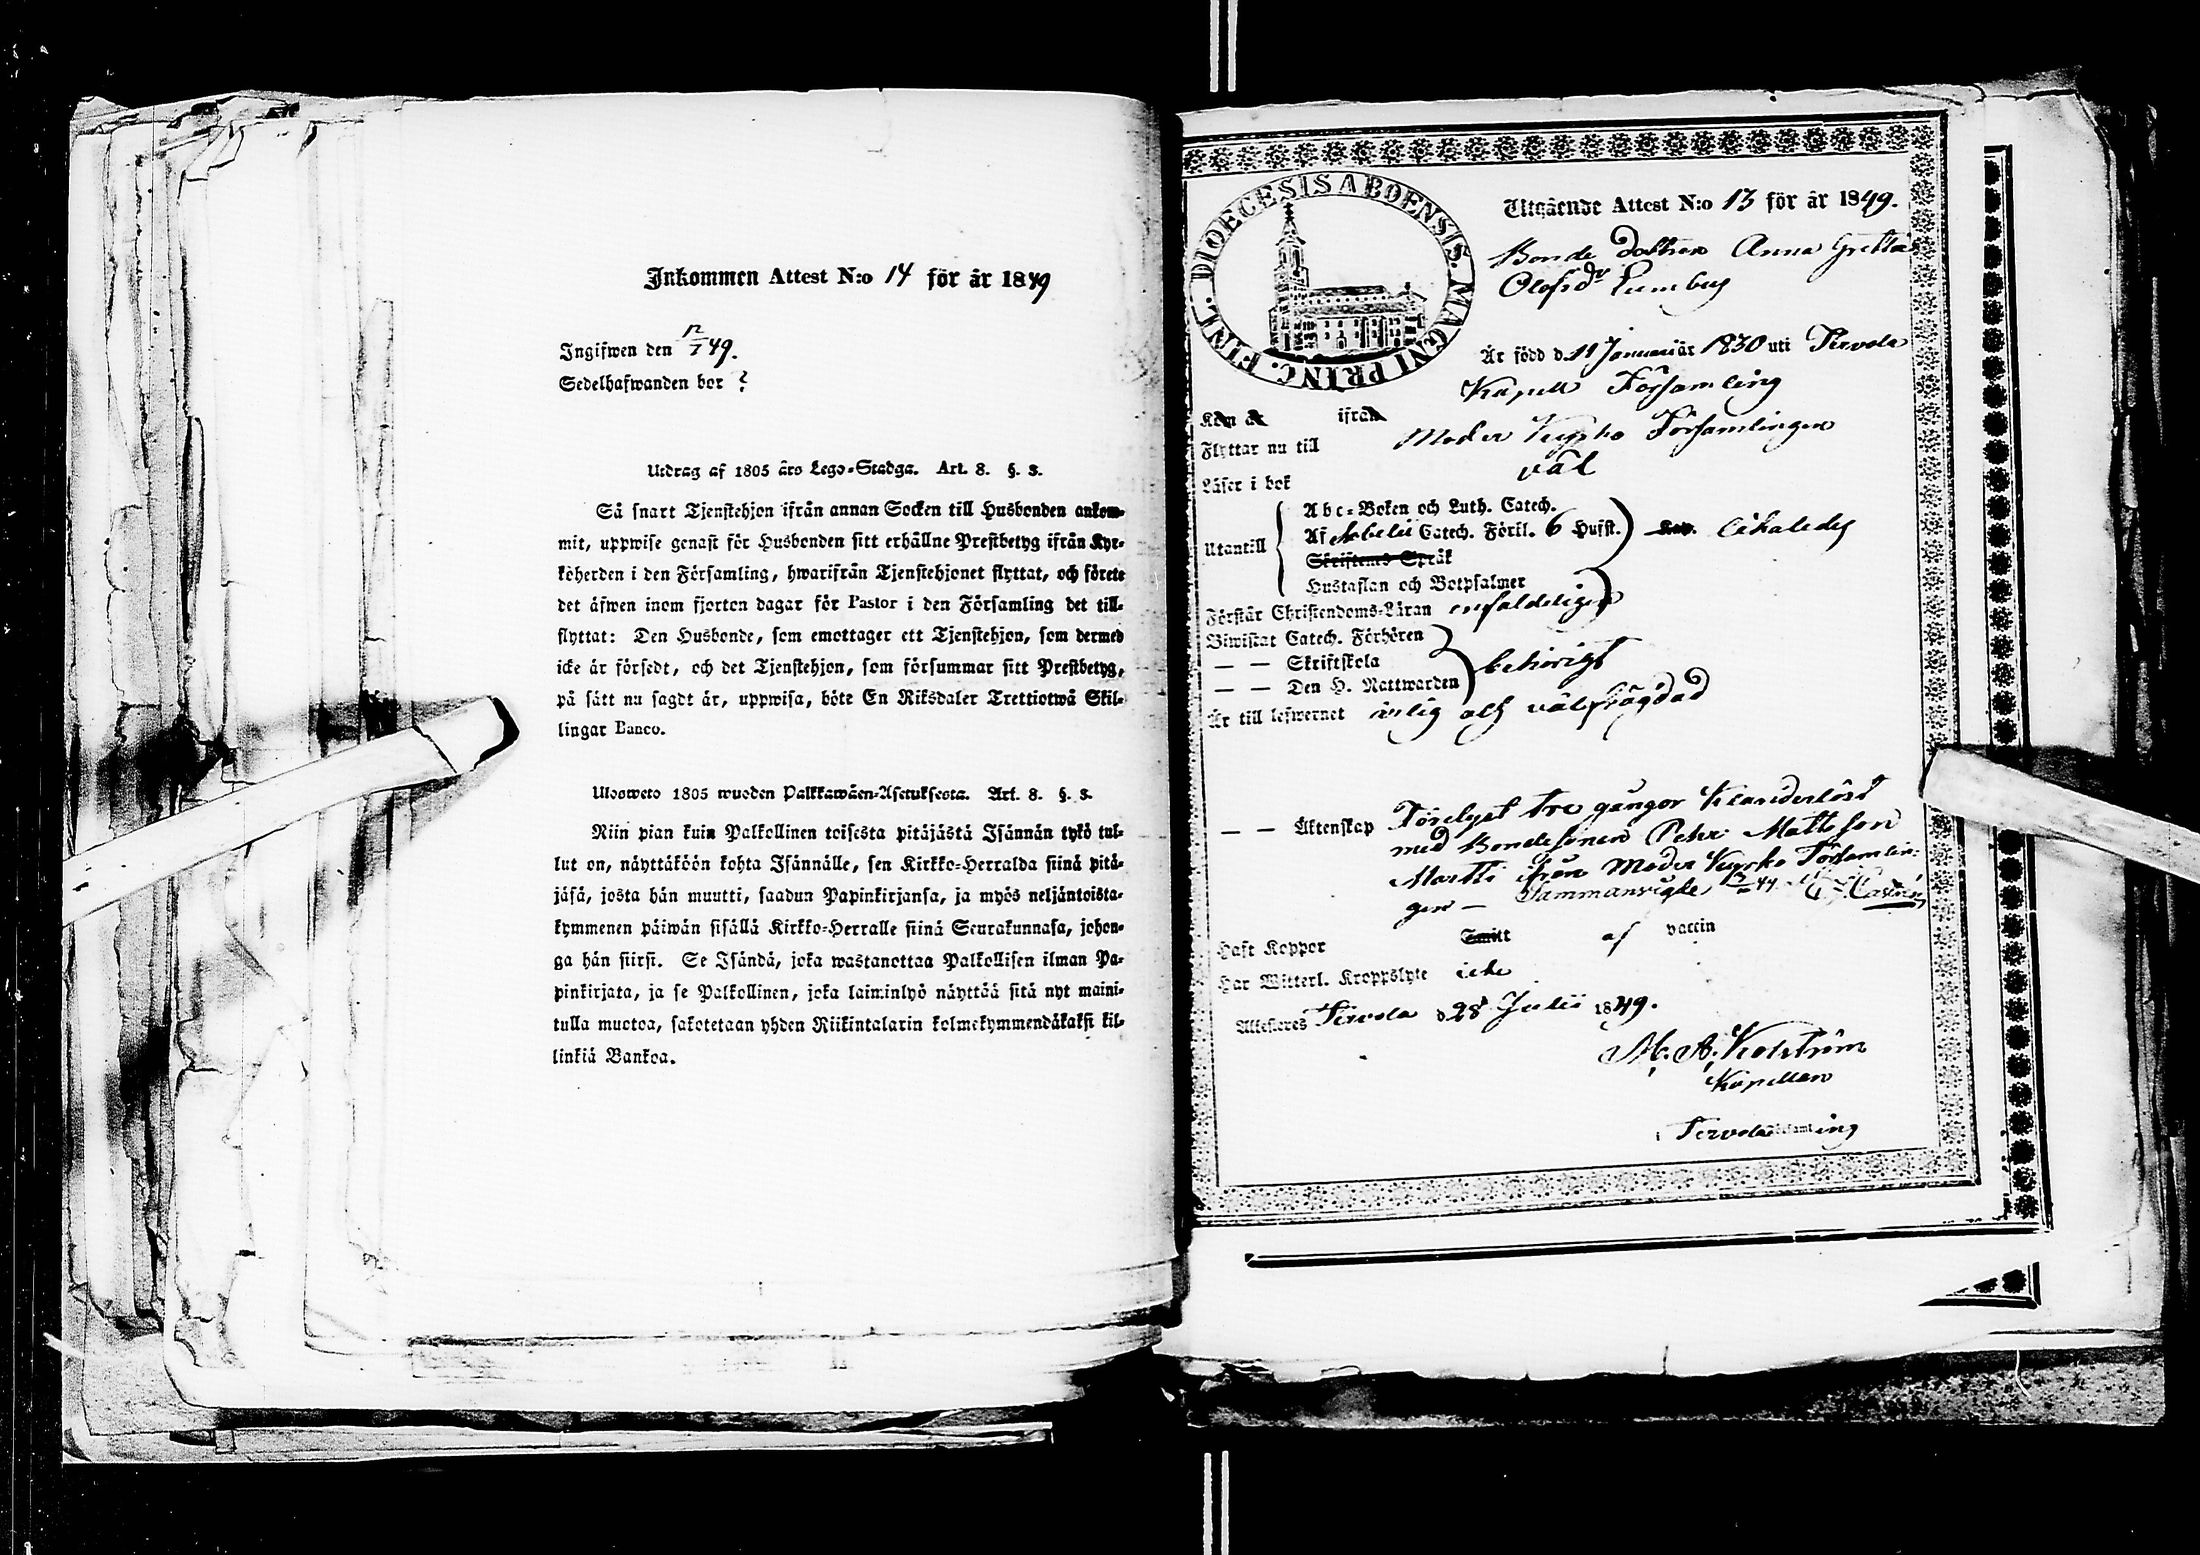 Inkommen Attest N:o 14 för år 1849
Ingifwen den 12/7 49.
Sedelhafwanden bor ?
Utdrag af 1805 års Lego-Stadga. Art. 8. §. 3.
Så snart Tjenstehjon ifrån annan Socken till Husbonden ankom-
mit, uppwise genast för Husbonden sitt erhållne Prestbetyg ifrån Kyr-
koherden i den Församling, hwarifrån Tjenstehjonet flyttat, och förete
det äfwen inom fjorton dagar för Pastor i den Församling det till-
flyttat: Den Husbonde, som emottager ett Tjenstehjon, som dermed
icke är försedt, och det Tjenstehjon, som försummar sitt Prestbetyg,
på sätt nu sagdt är, uppwisa, böte En Riksdaler Trettiotwå Skil-
lingar Banco.
Ulosweto 1805 wuoden Palkkawäen-Asetuksesta. Art. 8. §. 3.
Niin pian kuin Palkollinen toisesta pitäjästä Isännän tykö tul-
lut on, näyttäköön kohta Isännälle, sen Kirkko-Herralda siinä pitä-
jäsä, josta hän muutti, saadun Papinkirjansa, ja myös neljäntoista-
kymmenen päiwän sisällä Kirkko-Herralle siinä Seurakunnasa, johon-
ga hän siirsi. Se Isändä, joka wastanottaa Palkollisen ilman Pa-
pinkirjata, ja se Palkollinen, joka laiminlyö näyttää sitä nyt maini-
tulla muotoa, sakotetaan yhden Riikintalarin kolmekymmendäkaksi kil-
linkiä Bankoa.
DIOECESIS ABOENSIS. MAGNI PRINC. FINL.
Utgående Attest N:o 13 för år 1849.
Bonde dottren Anna Gretta
Olofsdr
Är född d. 11 Januari år 1830 uti Tervola
Kapell Församling
Kom år ifrån
Flyttar nu till Moder Kyrko Församlingen
Läser i bok väl
Abc-Boken och Luth. Catech.
Utantill Af Catech. Förkl. 6 Hufst.
Skriftenes Språk
Hustaflan och Botpsalmer
Förstår Christendoms-Läran enfaldeligen
Biwistat Catech. Förhören
— — Skriftskola behörigt
— — Den H. Nattwarden
Är till lefwernet ärlig och välfrägdad
— — Äktenskap Förelyst tre gångor Klanderlöst
med Bondesonen Pehr Mattsson
Martti ifrån Moder Kyrko Församlin-
gen — Sammanvigde
Haft Koppor Smitt af vaccin
Har Witterl. Kroppslyte icke
Attesteres Tervola d. 28 Julii 1849.
Kapellan
Tervola Församling